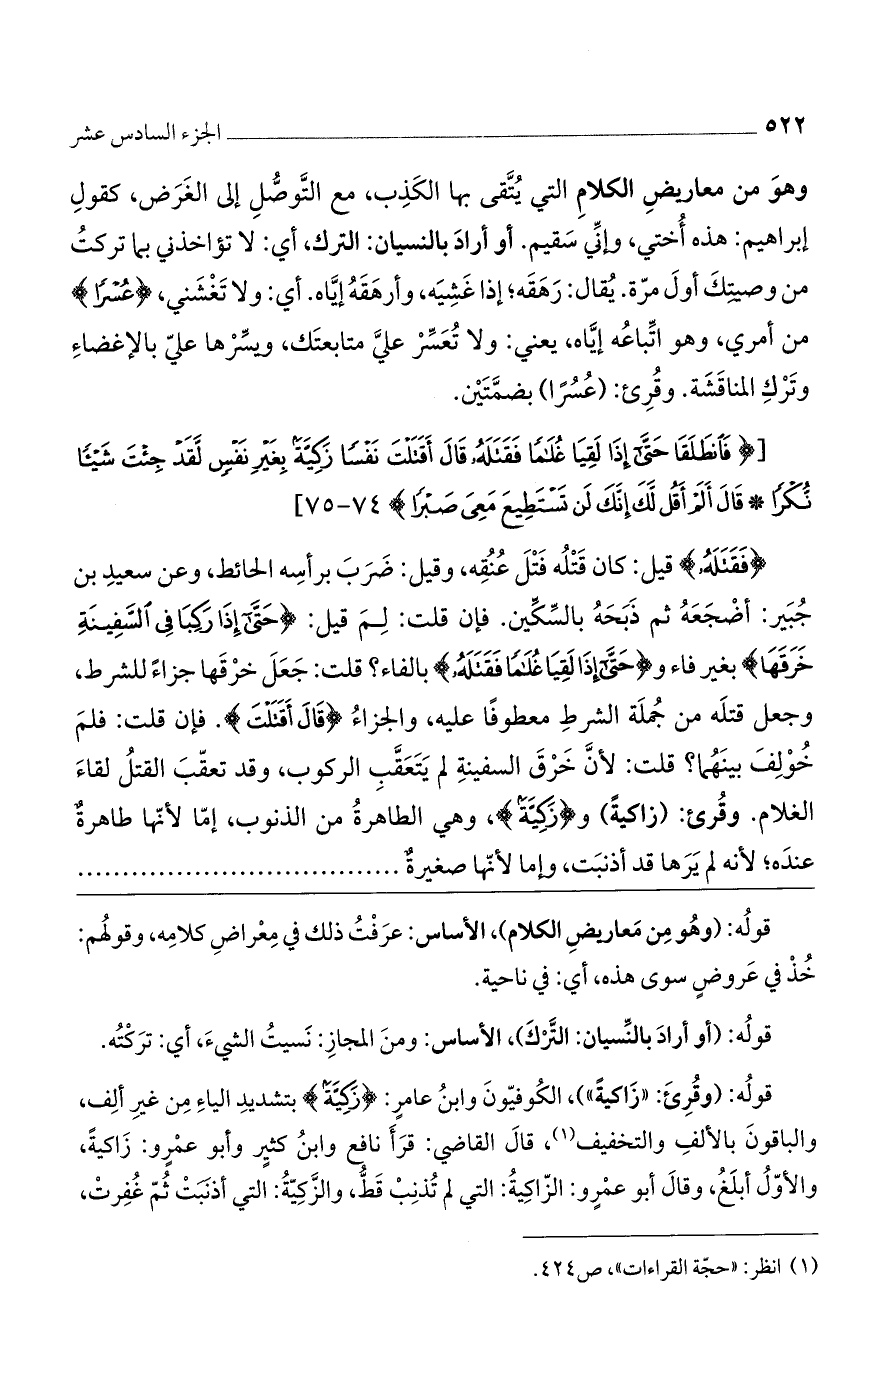 ٥٢٢ ــــــــــــــــــــــــــــــــــــــــــــــــ الجزء السادس عشر
وهوَ من معاريضِ الكلامِ التي يُتَّقى بها الكَذِب، مع التَّوصُّلِ إلى الغَرَض، كقولِ
إبراهيم: هذه أُختي، وإنِّي سَقيم. أو أرادَ بالنسيان: الترك، أي: لا تؤاخذني بما تركتُ
من وصيتِكَ أولَ مرّة. يُقال: رَهَقَه؛ إذا غَشِيَه، وأرهَقَهُ إيَّاه. أي: ولا تَغْشَني، ﴿عُسْرًا﴾
من أمري، وهو اتِّباعُه إيَّاه، يعني: ولا تُعَسِّرْ عليَّ متابعتَك، ويسِّرْها عليّ بالإغضاءِ
وتَرْكِ المناقَشَة. وقُرِئ: (عُسُرًا) بضمَّتَيْن.
[﴿فَٱنطَلَقَا حَتَّىٰٓ إِذَا لَقِيَا غُلَٰمًا فَقَتَلَهُۥ قَالَ أَقَتَلْتَ نَفْسًا زَكِيَّةًۢ بِغَيْرِ نَفْسٍ لَّقَدْ جِئْتَ شَيْـًٔا
نُّكْرًا * قَالَ أَلَمْ أَقُل لَّكَ إِنَّكَ لَن تَسْتَطِيعَ مَعِىَ صَبْرًا﴾ ٧٤-٧٥]
﴿فَقَتَلَهُۥ﴾ قيل: كان قَتْلُه فَتْلَ عُنُقِه، وقيل: ضَرَبَ برأسِه الحائط، وعن سعيدِ بن
جُبَير: أضْجَعَهُ ثم ذَبَحَهُ بالسكِّين. فإن قلت: لِـمَ قيل: ﴿حَتَّىٰٓ إِذَا رَكِبَا فِى ٱلسَّفِينَةِ
خَرَقَهَا﴾ بغير فاء و﴿حَتَّىٰٓ إِذَا لَقِيَا غُلَٰمًا فَقَتَلَهُۥ﴾ بالفاء؟ قلت: جَعَلَ خرْقَها جزاءً للشرط،
وجعل قتلَه من جُملَة الشرطِ معطوفًا عليه، والجزاءُ ﴿قَالَ أَقَتَلْتَ﴾. فإن قلت: فلمَ
خُوْلِفَ بينَهُما؟ قلت: لأنَّ خَرْقَ السفينةِ لم يَتَعَقَّبِ الركوب، وقد تعقّبَ القتلُ لقاءَ
الغلام. وقُرئ: (زاكيةً) و﴿زَكِيَّةًۢ﴾، وهي الطاهرةُ من الذنوب، إمّا لأنّها طاهرةٌ
عندَه؛ لأنه لم يَرَها قد أذنبَت، وإما لأنّها صغيرةٌ ....................................
قولُه: (وهُو مِن مَعاريضِ الكلام)، الأساس: عرَفْتُ ذلك في مِعْراضِ كلامِه، وقولُهم:
خُذْ في عَروضٍ سوى هذه، أي: في ناحية.
قولُه: (أو أرادَ بالنِّسيان: التَّرْكَ)، الأساس: ومنَ المجازِ: نَسيتُ الشيءَ، أي: تركْتُه.
قولُه: (وقُرِئَ: «زَاكيةً»)، الكُوفيّونَ وابنُ عامرٍ: ﴿زَكِيَّةًۢ﴾ بتشديدِ الياءِ مِن غيرِ ألِف،
والباقونَ بالألفِ والتخفيف(١)، قالَ القاضي: قرَأَ نافع وابنُ كثيرٍ وأبو عمْرٍو: زَاكيةً،
والأوّلُ أبلَغُ، وقالَ أبو عمْرٍو: الزّاكيةُ: التي لم تُذنِبْ قَطُّ، والزَّكيّةُ: التي أذنَبَتْ ثمّ غُفِرتْ،
(١) انظر: «حجّة القراءات»، ص٤٢٤.